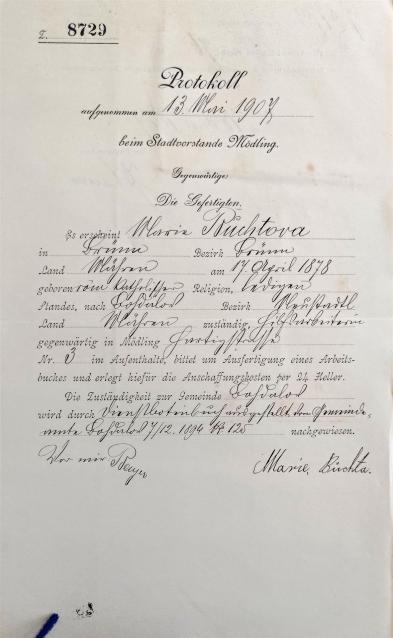 Z. 8729
Protokoll
aufgenommen am 13. Mai 1907
beim Stadtvorstande Mödling.
Gegenwärtige
Die Gefertigten.
Es erscheint Marie Buchtova
in Brünn Bezirk Brünn
Land Mähren am 17. April 1878
geboren röm. katholischer Religion, ledigen
Standes, nach Bohdalov Bezirk Neustadtl
Land Mähren zuständig, Hilfsarbeiterin
gegenwärtig in Mödling Hartigstrasse
Nr. 3 im Aufenthalte, bittet um Ausfertigung eines Arbeits-
buches und erlegt hiefür die Anschaffungskosten per 24 Heller.
Die Zuständigkeit zur Gemeinde Bohdalov
wird durch Dienstbotenbuch ausgestellt vom Gemeinde-
amte Bohdalov 7/12. 1894 125 nachgewiesen.
Vor mir
Marie Buchta.